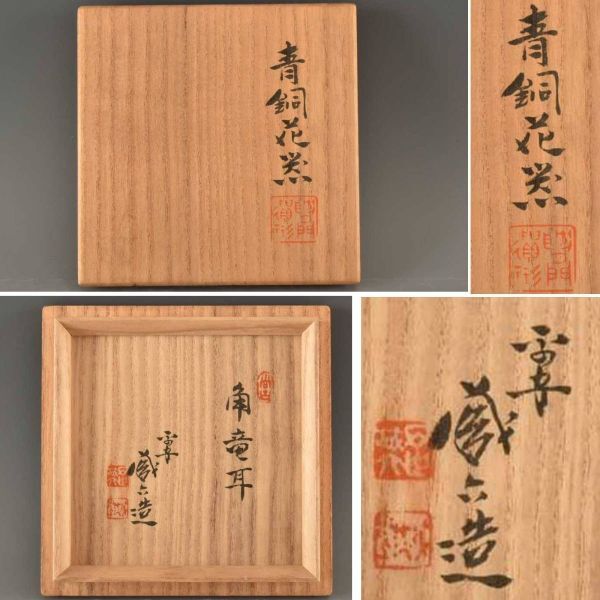 青銅花器
青銅花器
角竜耳
平安
蔵六造
平安
蔵六造